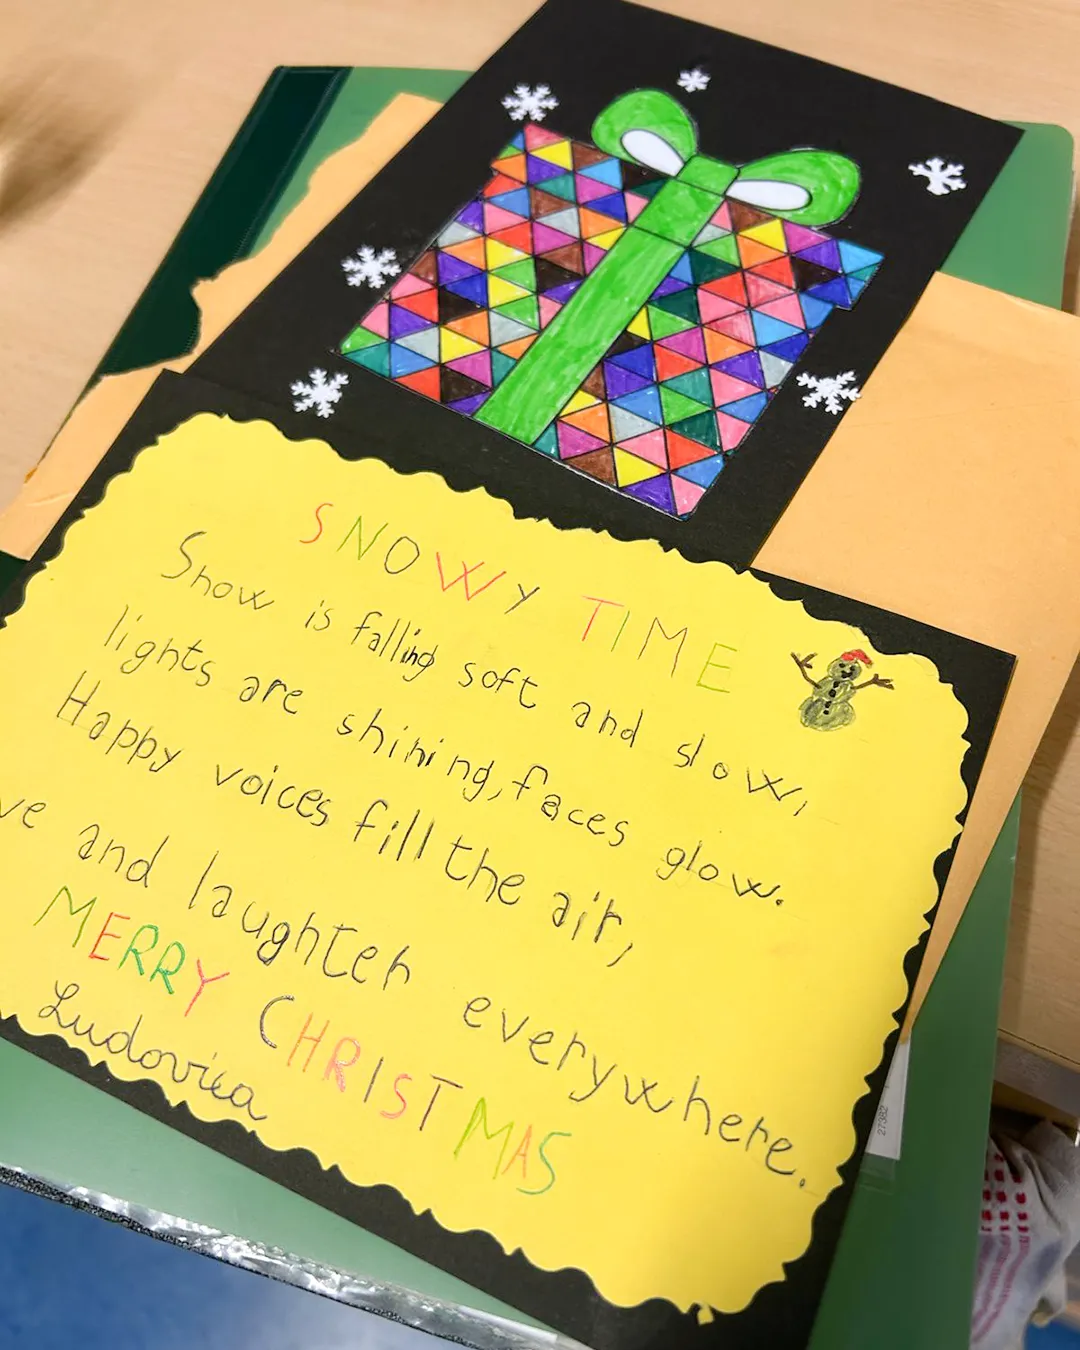 SNOWY TIME
Snow is falling soft and slow,
lights are shining, faces glow.
Happy voices fill the air,
ve and laughter everywhere.
MERRY CHRISTMAS
Ludovica
27382